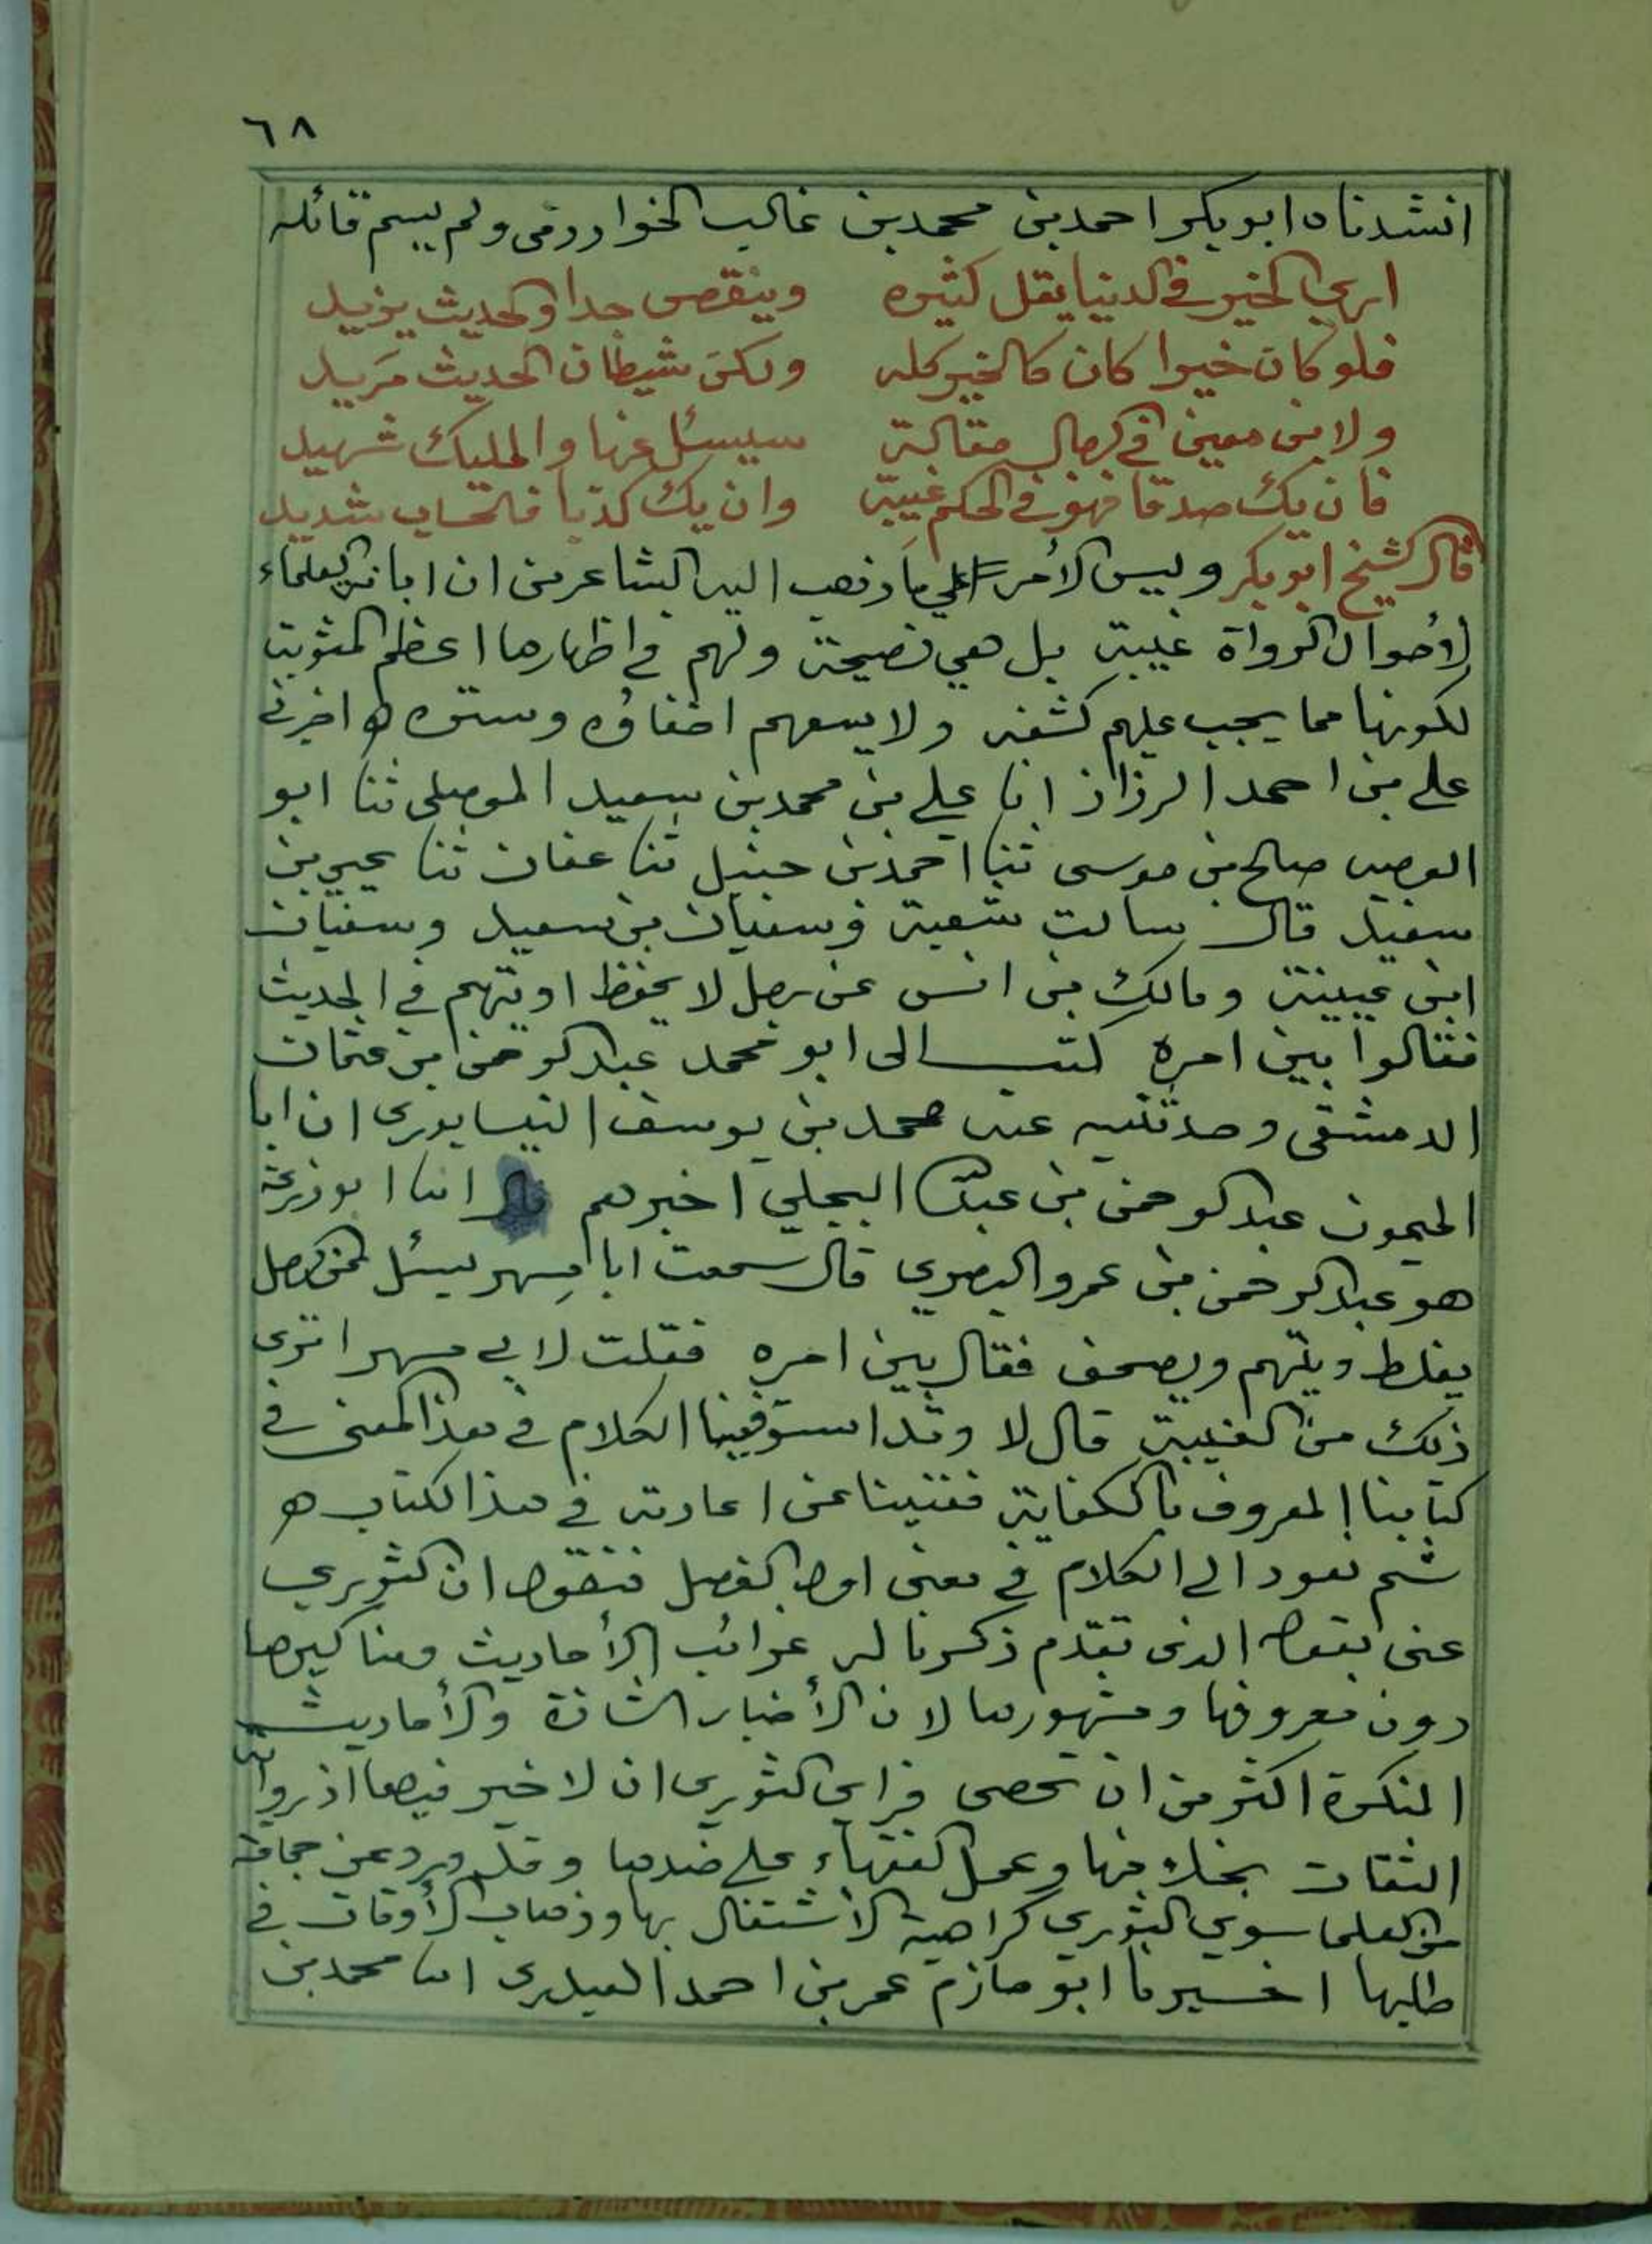 ٦٨
انشدناه ابو بكر احمد بن محمد بن غالب الخوارزمى ولم يسم قائله
ارى الخير في الدنيا يقل كثيره وينقص جدا والحديث يزيد
فلو كان خيرا كان كالخير كله ولكن شيطان الحديث مريد
ولابن معين في الرجال مقالة سيسئل عنها والمليك شهيد
فان يك صدقا فهو في الحكم غيبة وان يك كذبا فالحساب شديد
قال الشيخ ابو بكر وليس الأمر علي ما ذهب اليه الشاعر من ان ابانة العلماء
لأحوال الرواة غيبة بل هي نصيحة ولهم في اظهارها اعظم المثوبة
لكونها مما يجب عليهم كشفه ولا يسعهم اخفاؤه وستره ه اخبرني
علي بن احمد الرزاز انا علي بن محمد بن سعيد الموصلى ثنا ابو
العصر صالح بن موسى ثنا احمد بن حنبل ثنا عفان ثنا يحيي بن
سعيد قال سالت شعبة وسفيان بن سعيد وسفيان
ابن عيينة ومالك بن انس عن رجل لا يحفظ او يتهم في الحديث
فقالوا بين امره كتب الى ابو محمد عبد الرحمن بن عثمان
الدمشقى وحدثنيه عنه محمد بن يوسف النيسابورى ان ابا
الميمون عبد الرحمن بن عبد الله البجلي اخبرهم قال انا ابو زرعة
هو عبد الرحمن بن عمرو البصري قال سمعت ابا مسهر يسئل عن الرجل
يغلط ويتهم ويصحف فقال بين امره فقلت لابي مسهر اترى
ذلك من الغيبة قال لا وقد استوفينا الكلام في هذا المعنى في
كتابنا المعروف بالكفاية فغنينا عن اعادته في هذا الكتاب ه
ثم نعود الي الكلام في معنى اول الفصل فنقول ان الثوري
عنى بقوله الذى تقدم ذكرنا له غرائب الأحاديث ومناكيرها
دون معروفها ومشهورها لان الأخبار الشاذة والأحاديث
المنكرة اكثر من ان تحصى فراي الثورى ان لا خير فيها اذ رواية
الثقات بخلافها وعمل الفقهاء علي ضدها وقد ورد عن جماعة
من العلما سوي الثوري كراهية الأشتغال بها وذهاب الأوقات في
طلبها اخبرنا ابو حازم عمر بن احمد العبدرى انا محمد بن